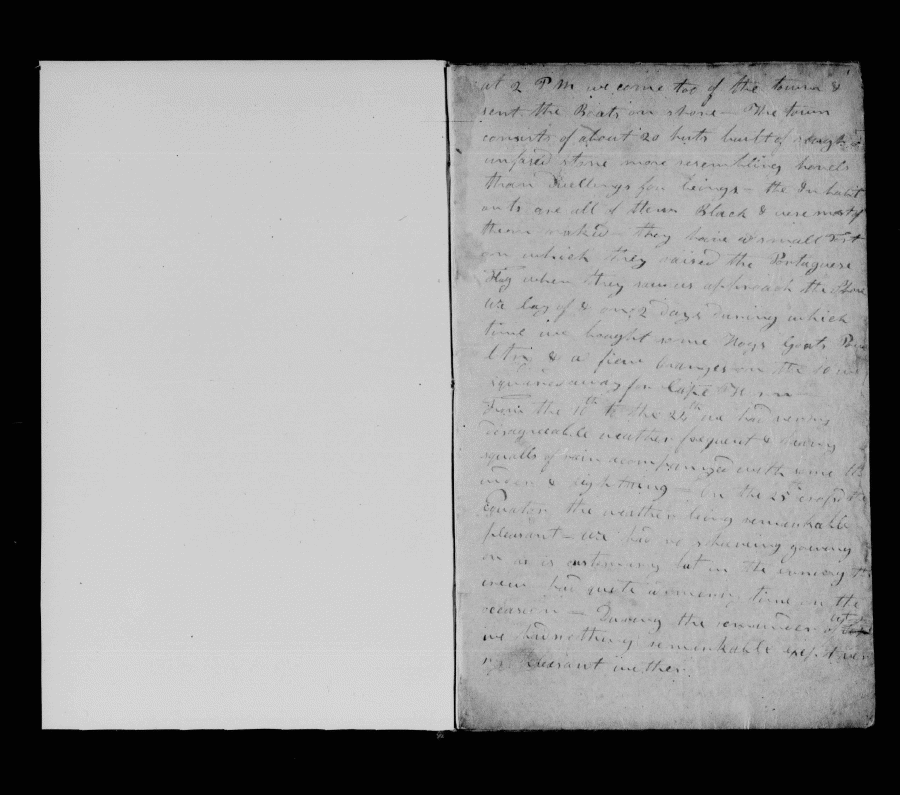 at 2 P M we come too of the town &
sent the Boats on shore – The town
consists of about 20 huts built of rough &
stone more resembling hovels
than Dwellings for beings – the Inhabit
ants are all of them Black & were most of
them naked – they have a small Fort
on which they raised the Portuguese
Flag when they approach the Shore
We lay of & on 2 days during which
time we bought some Hogs Goats
& a few Oranges on the 10
away for Cape Horn –
From the 10th to the 24th we had very
disagreeable weather frequent & heavy
squalls of rain acompanized with some th
under & lightning – On the 25th the
Equator the weather being remarkable
pleasant – We had no shaveing goueing
on as is customary but in the the
crew had quite a merry time on the
occasion – During the remainder of
we had nothing remarkable
pleasant wether.